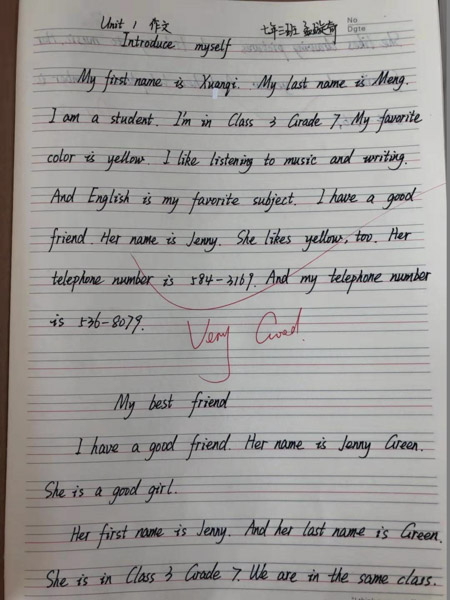 Unit 1 作文 七年三班 孟璇奇 No
Date
Introduce myself
My first name is Xuanqi. My last name is Meng.
I am a student. I'm in Class 3 Grade 7. My favorite
color is yellow. I like listening to music and writing.
And English is my favorite subject. I have a good
friend. Her name is Jenny. She likes yellow, too. Her
telephone number is 584-3169. And my telephone number
is 536-8079.
Very Good.
My best friend
I have a good friend. Her name is Jenny Green.
She is a good girl.
Her first name is Jenny. And her last name is Green.
She is in Class 3 Grade 7. We are in the same class.